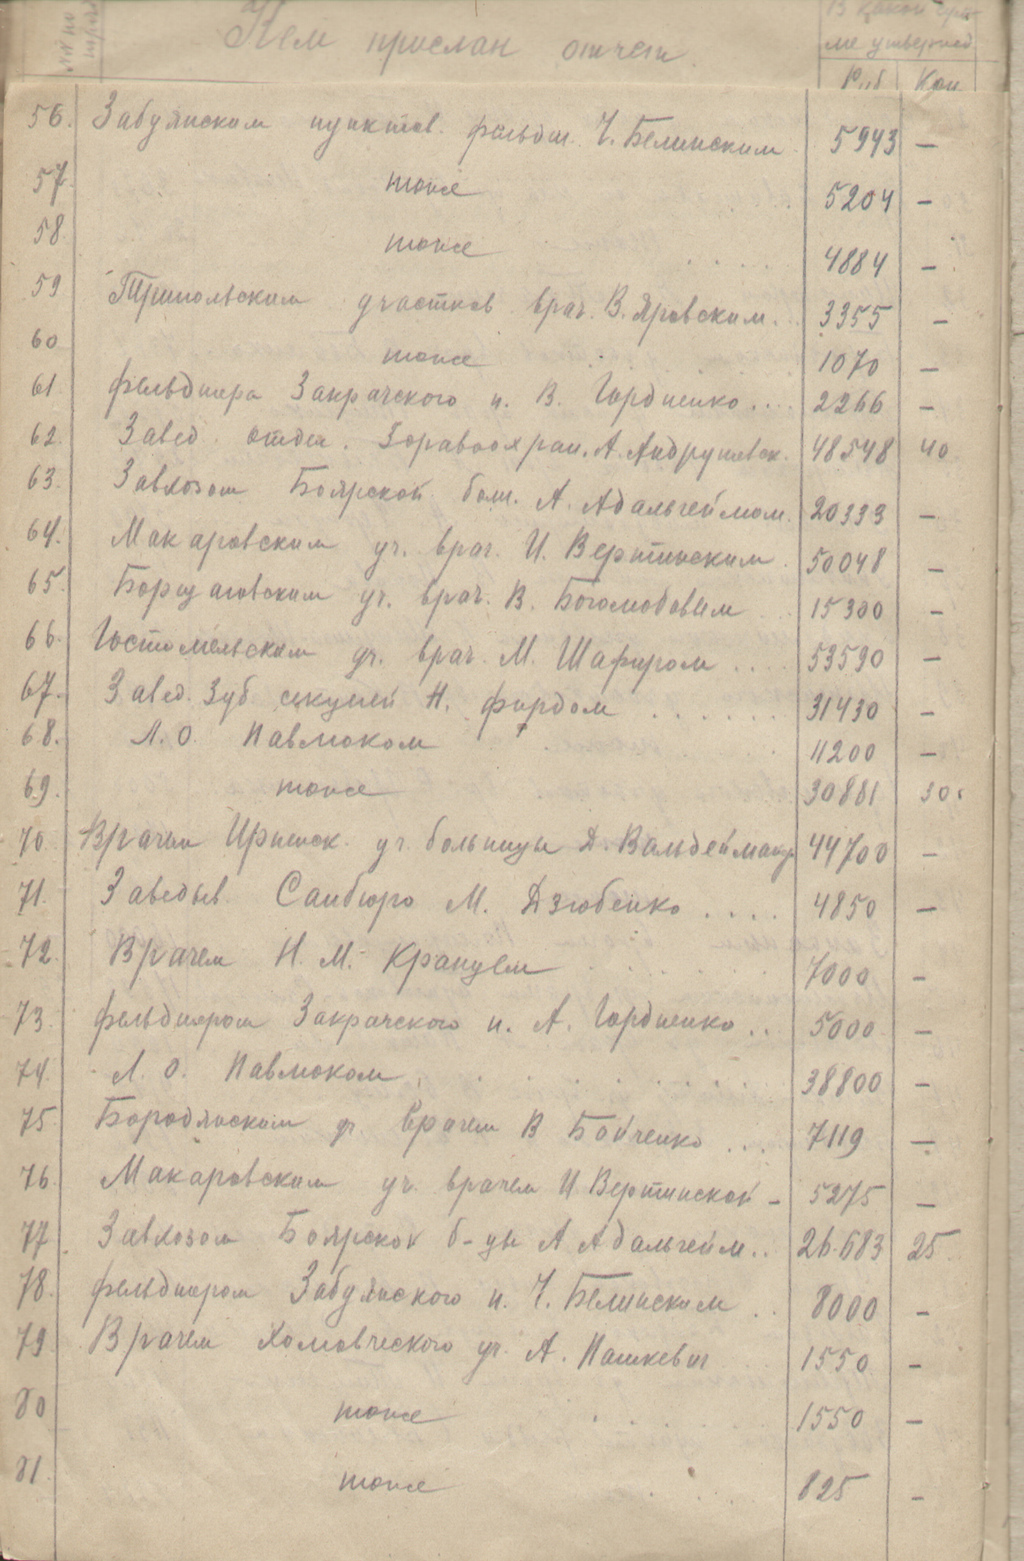 №№ по поряд Кем прислан отчет В какой сум-
ме утвержд.
Руб Коп
56. Забуянским пунктов. фельдш. Ч. Белинским 5943 —
57. тоже 5204 —
58. тоже 4884 —
59 Трипольским участков врач. В. Яровским... 3355 —
60 тоже 1070 —
61. фельдшера п. В. Гордиенко.... 2266 —
62. Завед. отдел. Здравоохран. А. Андрушевск. 48548 40
63. Завхозом Боярской больн. А. Адальгеймом. 20333 —
64. Макаровским уч. врач. И. Вертинским. 50048 —
65. Борщаговским уч. врач. В. Боголюбовым 15300 —
66. Гостомельским уч. врач. М. Шафиром.... 53590 —
67. Завед. Зуб. секцией Н. фирдом....... 31430 —
68. Л. О. Павлюком 11200 —
69. тоже 30881 30.
70. Врачем Ирпенск. уч. больницы Д. Вальдейман 44700 —
71. Заведыв. Санбюро М. Дзюбенко.... 4850 —
72. Врачем Н. М. Кранцем 7000 —
73. фельдшером п. А. Гордиенко.. 5000 —
74. Л. О. Павлюком. 38800 —
75. Бородянским уч. врачем В Бойченко... 7119 —
76. Макаровским уч. врачем И Вертинской - 5275 —
77. Завхозом Боярской б-цы А Адальгейм.. 26.683 25.
78. фельдшером Забуянского п. Ч. Белинским.. 8000 —
79 Врачем уч. А. Пашкевич 1550 —
80 тоже 1550 —
81. тоже 825 —